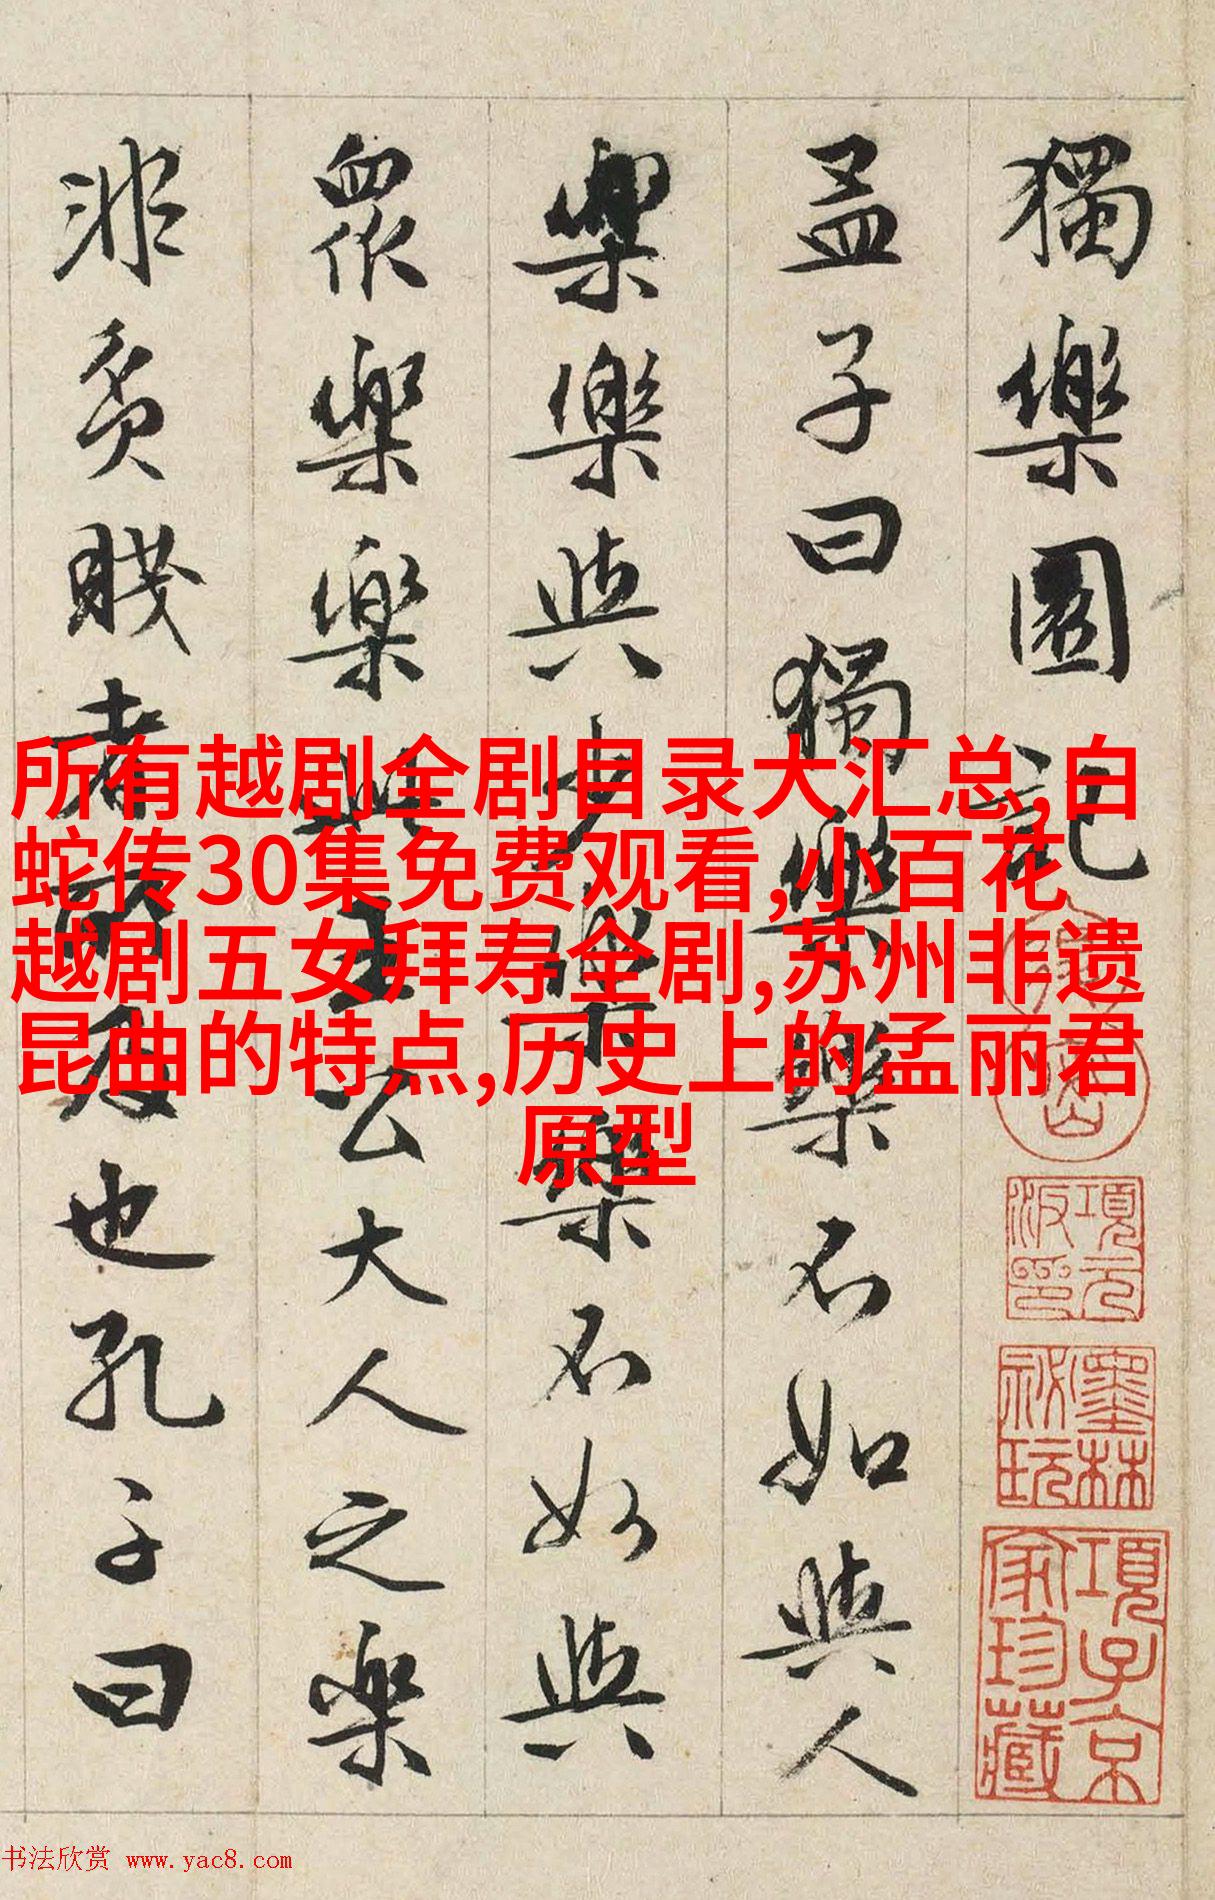 獨樂園記
孟子曰獨樂樂不如與人
樂樂與少樂樂不如與
眾樂樂此王公大人之樂
非貧賤者所及也孔子曰
所有越剧全剧目录大汇总,白
蛇传30集免费观看,小百花
越剧五女拜寿全剧,苏州非遗
昆曲的特点,历史上的孟丽君
原型
項元
汴印
墨林
祕玩
項子京
家珍藏
书法欣赏 www.yac8.com